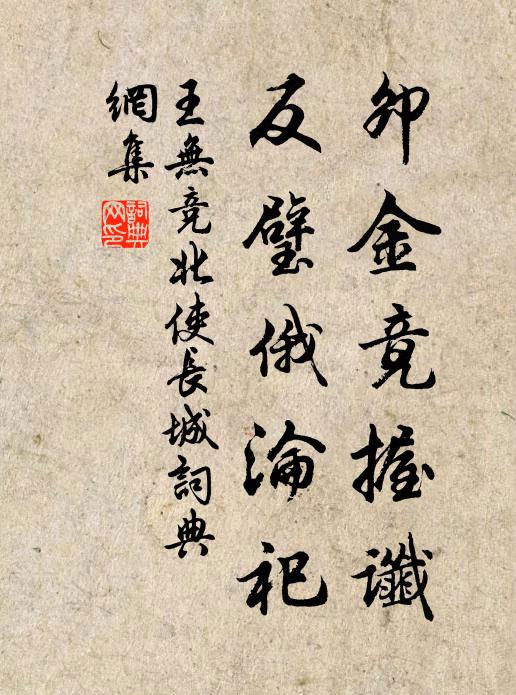 卯金竟握讖
反璧俄淪祀
王無競北使長城詞典
網集
詞典網印